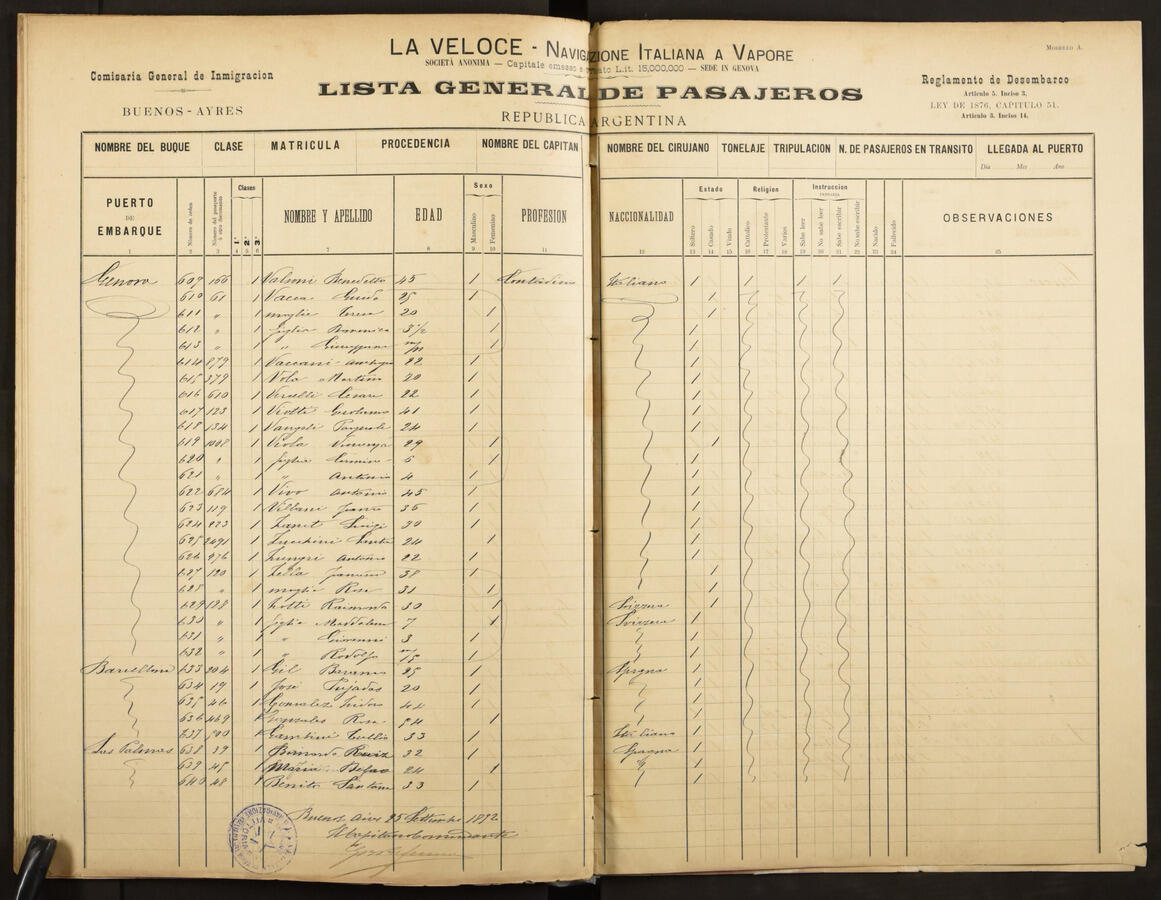 LA VELOCE - NAVIGAZIONE ITALIANA A VAPORE
SOCIETÀ ANONIMA — Capitale emesso e L.it. 15,000,000 — SEDE IN GENOVA
MODELLO A.
Comisaria General de Inmigracion
BUENOS-AYRES
LISTA GENERAL DE PASAJEROS
REPUBLICA ARGENTINA
Reglamento de Desembarco
Articulo 5. Inciso 3.
LEY DE 1876, CAPITULO 51.
Articulo 8. Inciso 14.
NOMBRE DEL BUQUE CLASE MATRICULA PROCEDENCIA NOMBRE DEL CAPITAN NOMBRE DEL CIRUJANO TONELAJE TRIPULACION N. DE PASAJEROS EN TRANSITO LLEGADA AL PUERTO
Dia Mes Ano
PUERTO DE EMBARQUE Número de orden Clases 1ª 2ª 3ª NOMBRE Y APELLIDO EDAD Sexo Masculino Femenino PROFESION NACCIONALIDAD Estado Soltero Casado Viudo Religion Catolico Protestante Varios Instruccion Sabe leer No sabe leer Sabe escribir No sabe escribir Nacido Fallecido OBSERVACIONES
1 2 3 4 5 6 7 8 9 10 11 12 13 14 15 16 17 18 19 20 21 22 23 24 25
Genova 609 166 1 Benedetto 45 1 Contadino Italiano 1 1 1 1
610 61 1 Vacca Guido 25 1 1
611 " 1 moglie Teresa 20 1 1
612 " 1 figlia Domenica 3½ 1 1
613 " 1 " Giuseppina 1 1
614 879 1 Vaccani 22 1 1
615 379 1 Vola Martino 20 1 1
616 610 1 Cesare 22 1 1
617 123 1 Girolamo 41 1 1
618 134 1 Vangeli Pasquale 24 1 1
619 1 Viola Vincenza 29 1 1
620 " 1 figlia 6 1 1
621 " 1 " Antonio 4 1 1
622 684 1 Vivo Antonio 45 1 1
623 119 1 Villani 36 1 1
624 223 1 Zanet Luigi 30 1 1
625 2491 1 Zucchini 24 1 1
626 276 1 Antonio 22 1 1
627 120 1 38 1 1
628 " 1 moglie Rosa 31 1 1
629 188 1 Zotti Raimonda 30 1 Svizzera 1
630 " 1 figlia Maddalena 7 1 Svizzera 1
631 " 1 " Giovanni 3 1 1
632 " 1 " Rodolfo 1 1
Barcellona 633 304 1 Gil 25 1 Spagna 1
634 19 1 José Pujadas 20 1 1
635 46 1 Gonzalez Isidro 44 1 1
636 469 1 Gonzales Rosa 54 1 1
637 500 1 Gambini Tullio 33 1 Italiano 1
Las Palmas 638 39 1 Bernardo Ruiz 32 1 Spagna 1
639 45 1 Maria 24 1 1
640 48 1 Benito Santana 33 1 1
Buenos Aires 25 Settembre 1892
Il Capitano Comandante